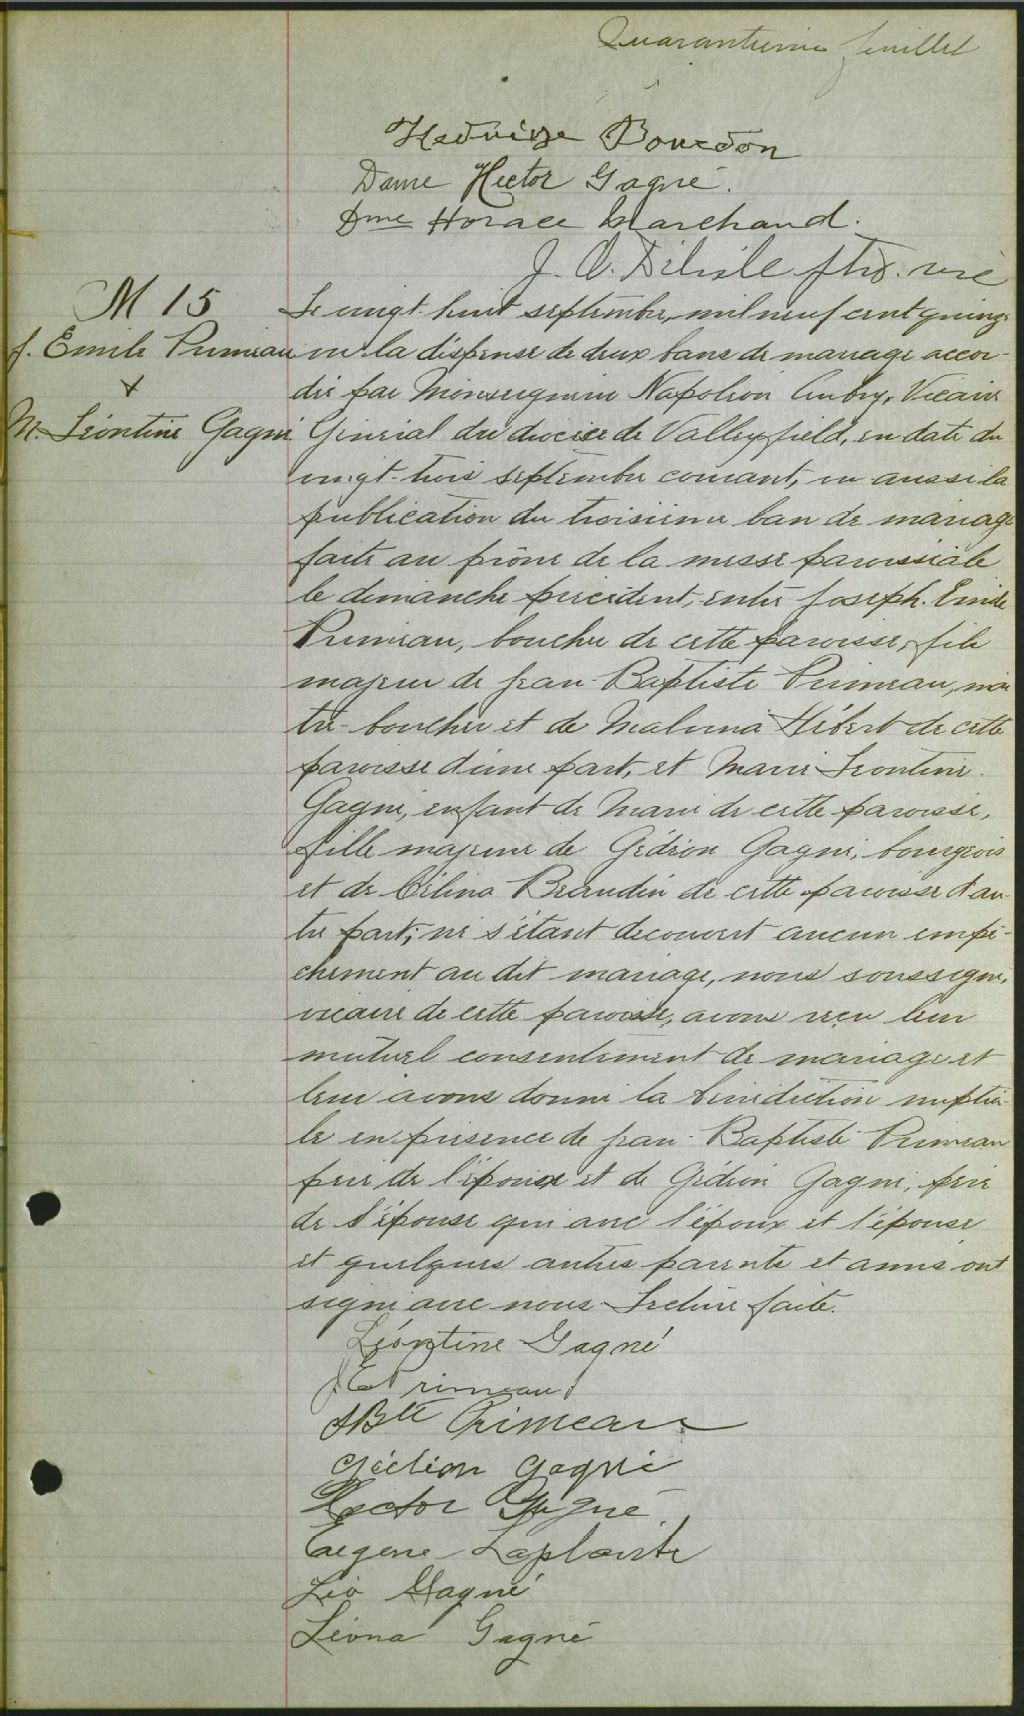 Quarantième feuillet
Hedwidge Bourdon
Dame Hector Gagné.
Dme Horace Marchand.
J. A. Delisle ptre. vic
M 15
Le vingt-huit septembre, mil neuf cent quinze
J. Emile Primeau
vu la dispense de deux bans de mariage accor-
+
dée par Monseigneur Napoléon Aubry, Vicaire
M. Léontine Gagné
Général du diocèse de Valleyfield, en date du
vingt-trois septembre courant, vu aussi la
publication du troisième ban de mariage
faite au prône de la messe paroissiale
le dimanche précédent, entre Joseph. Emile
Primeau, boucher de cette paroisse, fils
majeur de Jean-Baptiste Primeau, maî
tre-boucher et de Malvina Hébert de cette
paroisse d'une part, et Marie Léontine
Gagné, enfant de Marie de cette paroisse,
fille majeure de Gédéon Gagné, bourgeois
et de Célina Beaudin de cette paroisse d'au-
tre part; ne s'étant découvert aucun empê-
chement au dit mariage, nous soussigné,
vicaire de cette paroisse, avons reçu leur
mutuel consentement de mariage et
leur avons donné la bénédiction nuptia-
le en présence de Jean-Baptiste Primeau
père de l'époux et de Gédéon Gagné, père
de l'épouse qui avec l'époux et l'épouse
et quelques autres parents et amis ont
signé avec nous. Lecture faite.
Léontine Gagné
J E Primeau
J Bte Primeau
Gédéon Gagné
Hector Gagné
Eugene Laplante
Léo Gagné
Léona Gagné